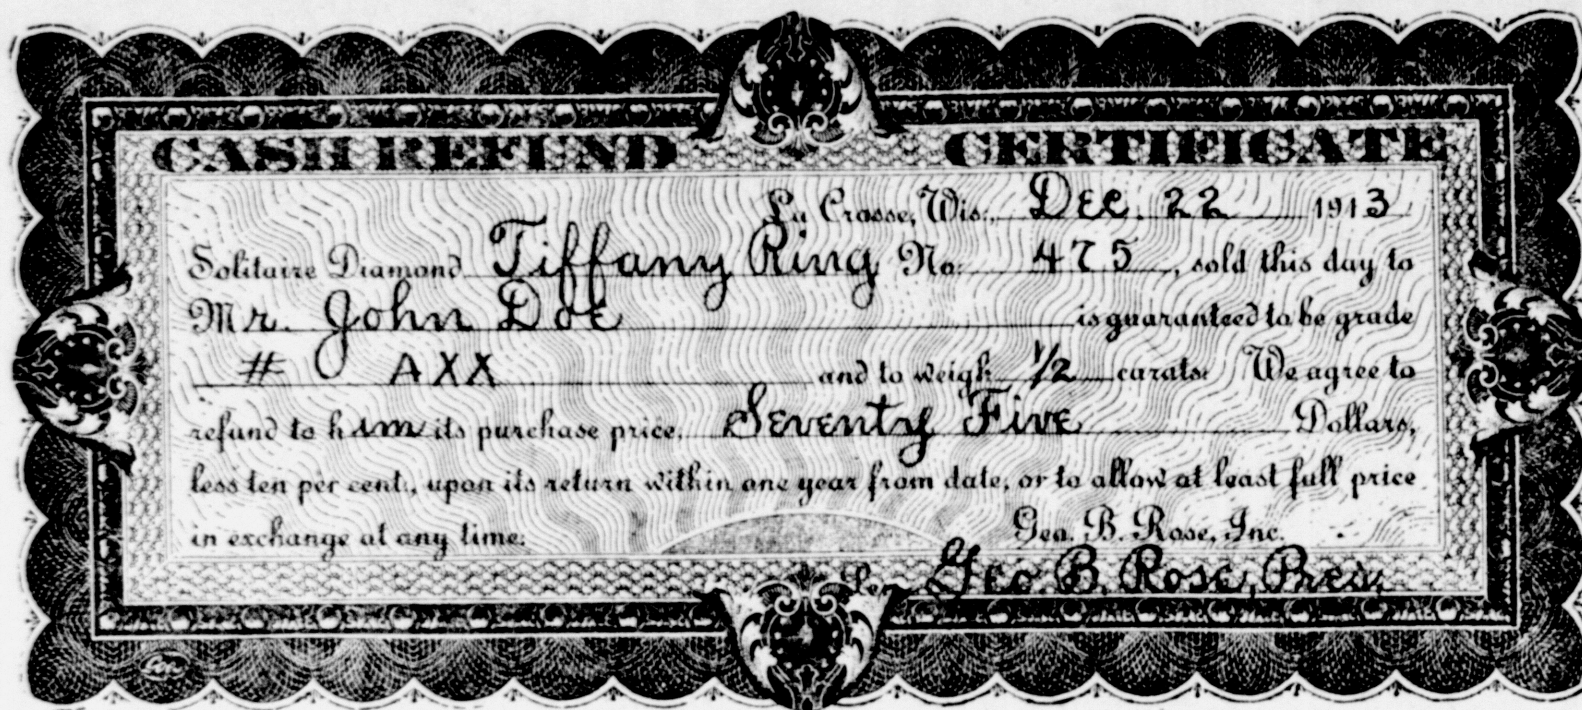 CASH REFUND CERTIFICATE
La Crosse, Wis., Dec. 22 1913
Solitaire Diamond Tiffany Ring No. 475, sold this day to
Mr. John Doe is guaranteed to be grade
# AXX and to weigh 1/2 carats. We agree to
refund to him its purchase price, Seventy Five Dollars,
less ten per cent., upon its return within one year from date, or to allow at least full price
in exchange at any time.
Geo. B. Rose, Inc.
Geo B. Rose, Pres.